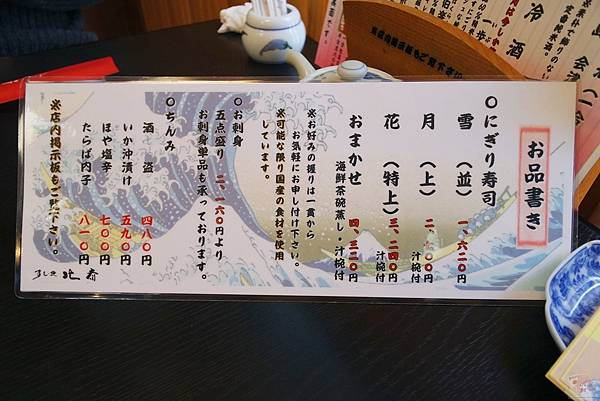 お品書き
○にぎり寿司
雪（並） 一、六二〇円
月（上） 二、一〇〇円
汁椀付
花（特上） 三、二四〇円
汁椀付
おまかせ 四、三二〇円
海鮮茶碗蒸し・汁椀付
※お好みの握りは一貫から
お気軽にお申し付け下さい。
※可能な限り国産の食材を使用
しています。
○お刺身
五点盛り 二、一六〇円より
お刺身単品も承っております。
○ちんみ
酒盗 四八〇円
いか沖漬け 五九〇円
ほや塩辛 七〇〇円
たらば内子 八一〇円
※店内掲示板もご覧下さい。
冷酒